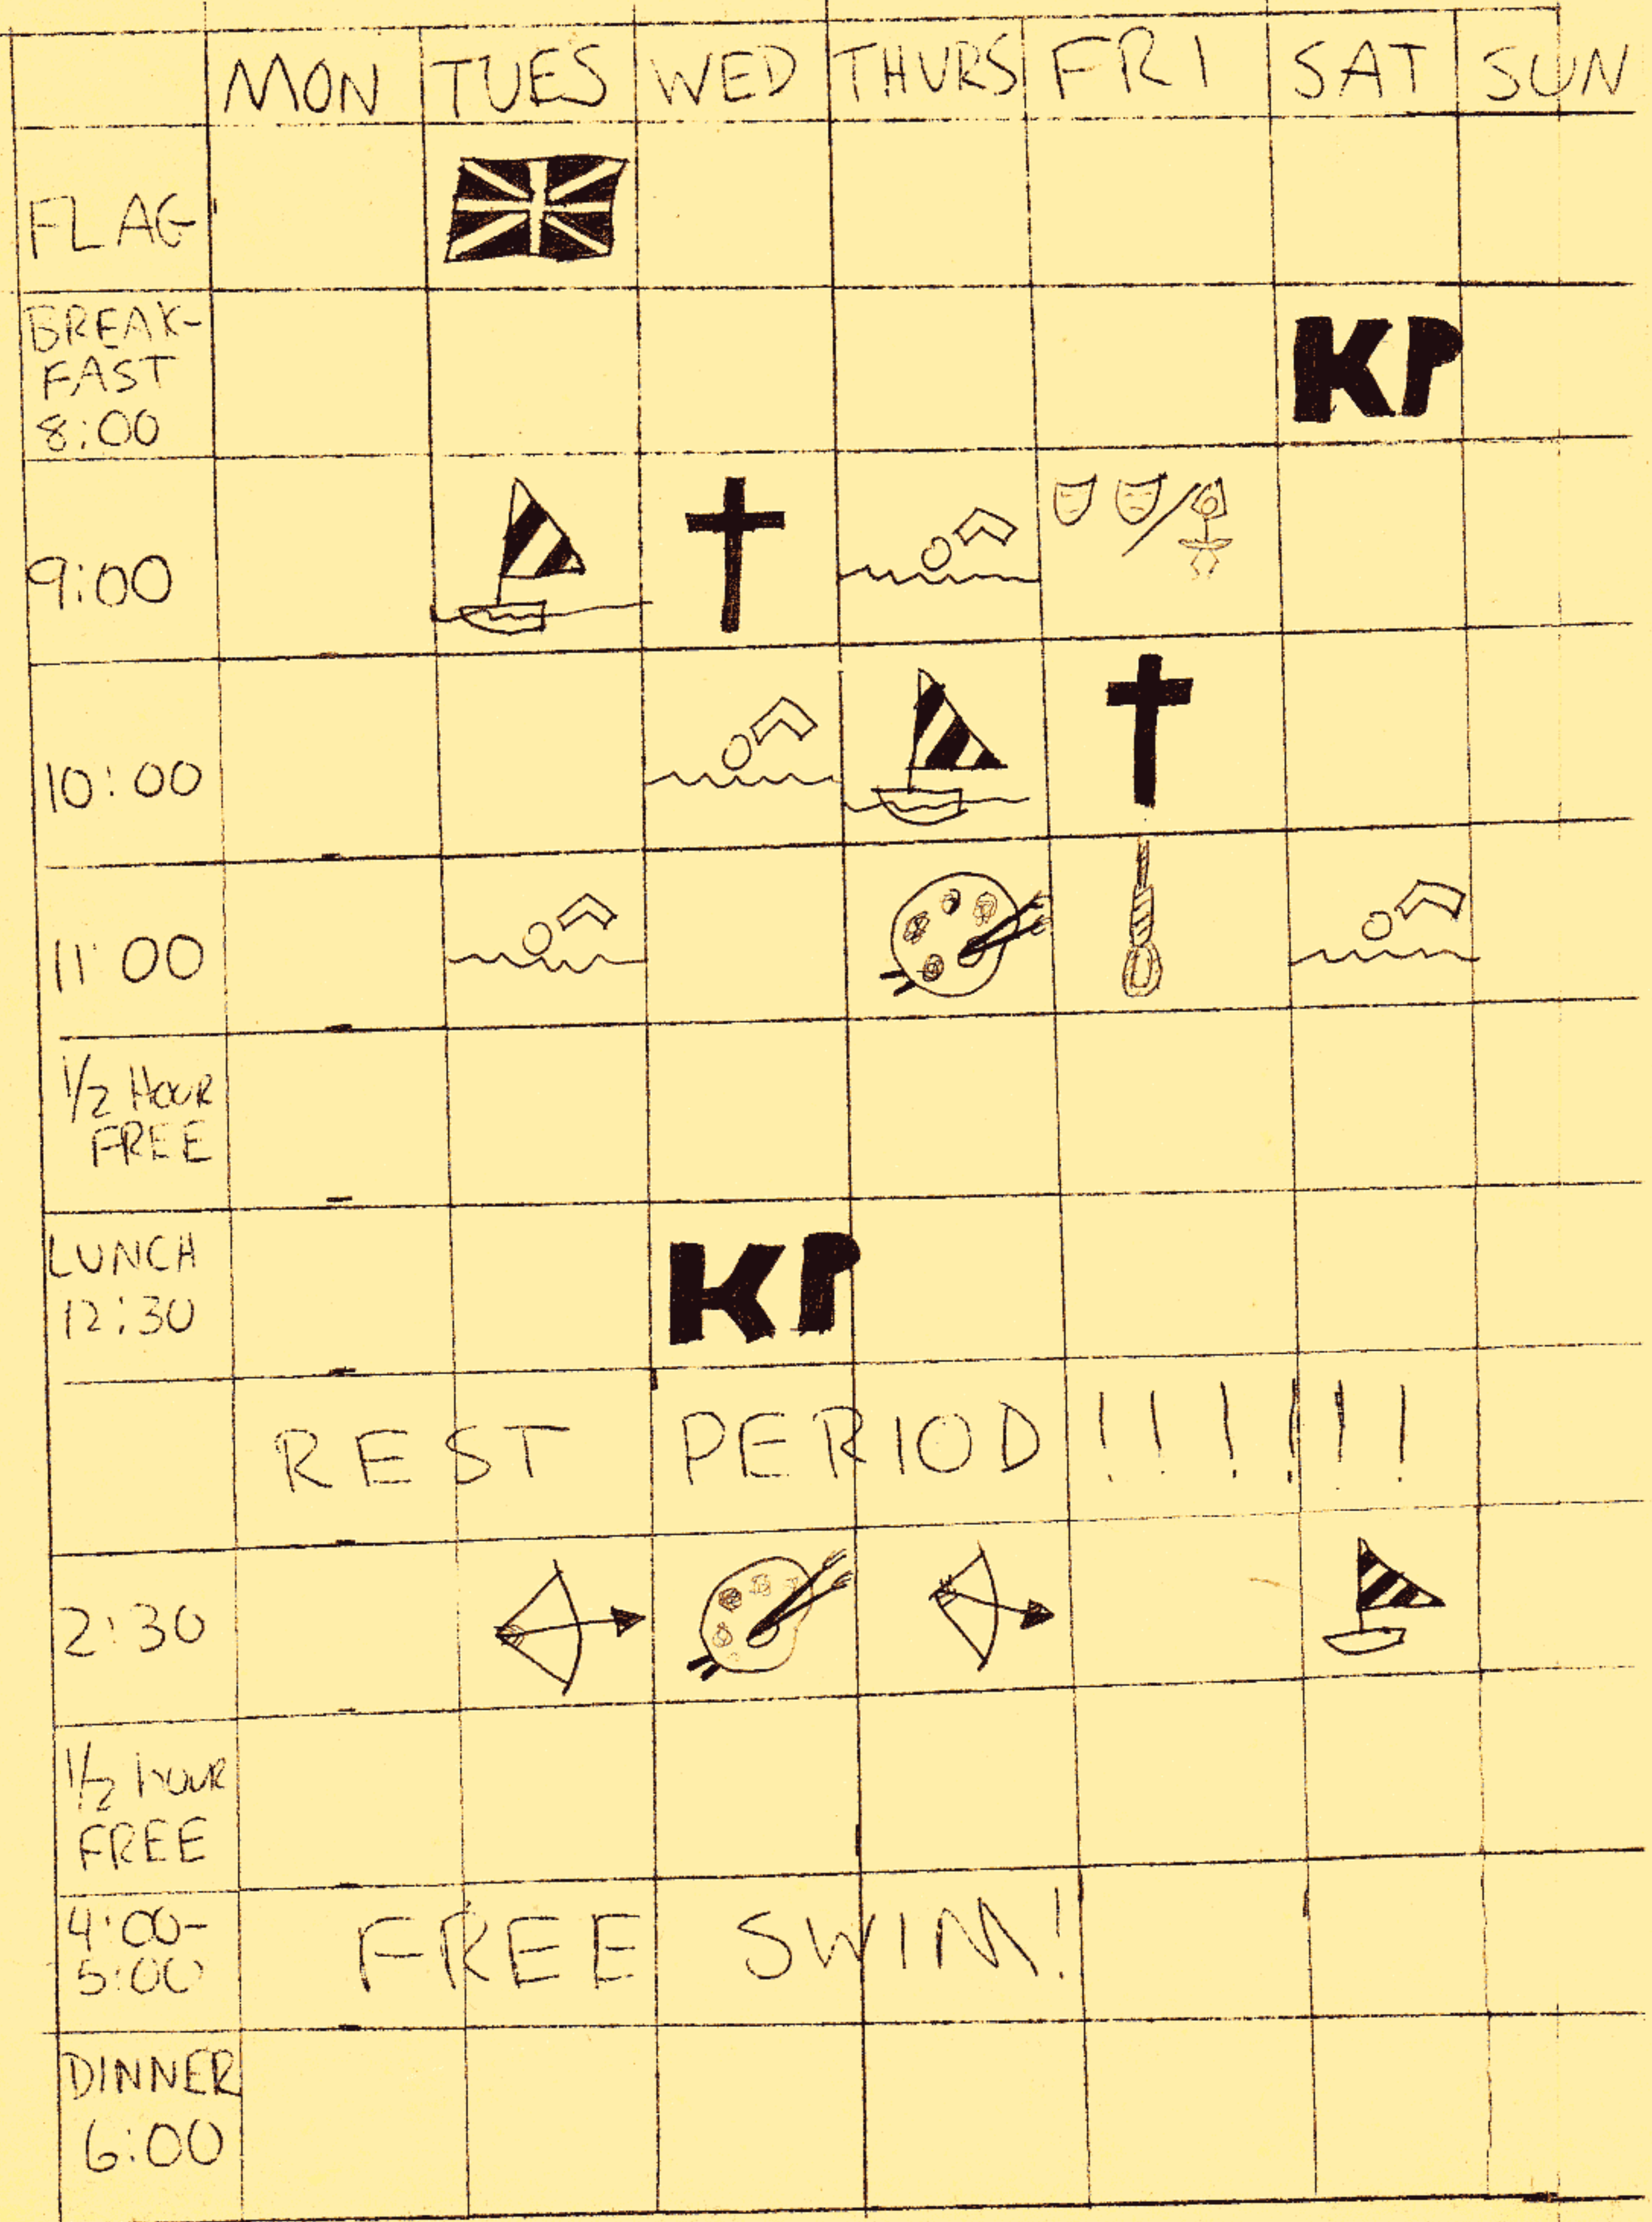 MON TUES WED THURS FRI SAT SUN
FLAG
BREAK-
FAST
8:00
KP
9:00
10:00
11:00
1/2 HOUR
FREE
LUNCH
12:30
KP
REST PERIOD!!!!!!
2:30
1/2 HOUR
FREE
4:00-
5:00
FREE SWIM!
DINNER
6:00